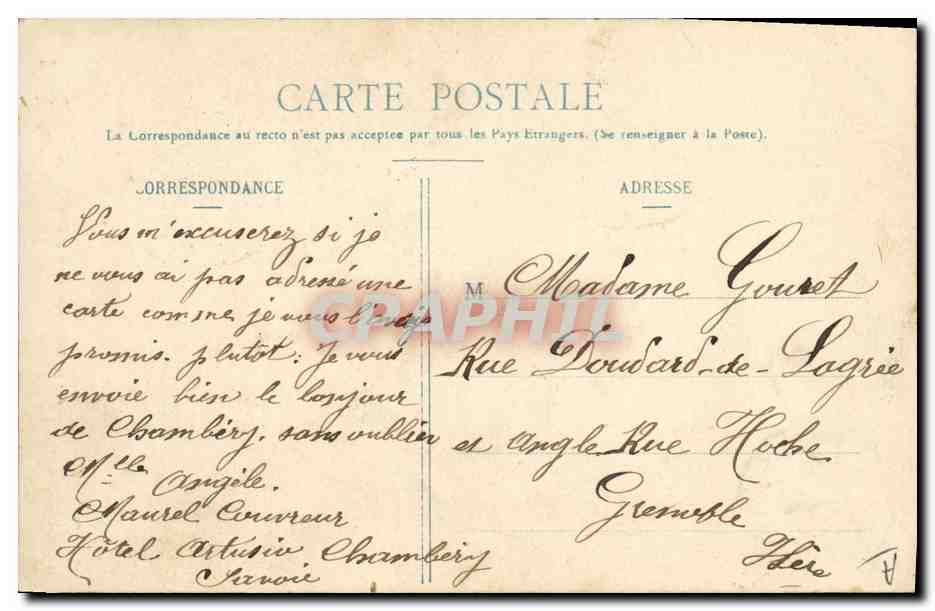 CARTE POSTALE
La Correspondance au recto n'est pas acceptée par tous les Pays Etrangers. (Se renseigner à la Poste).
CORRESPONDANCE
Vous m'excuserez si je
ne vous ai pas adressé une
carte comme je vous l'avais
promis. plutot: Je vous
envoie bien le bonjour
de Chambéry. sans oublier
Mlle Angèle.
Maurel Couvreur
Hôtel Artusio Chambéry
Savoie
ADRESSE
M Madame Gouret
Rue Doudard-de-Lagrée
et Angle Rue Hoche
Grenoble
Isère
CPAPHIL